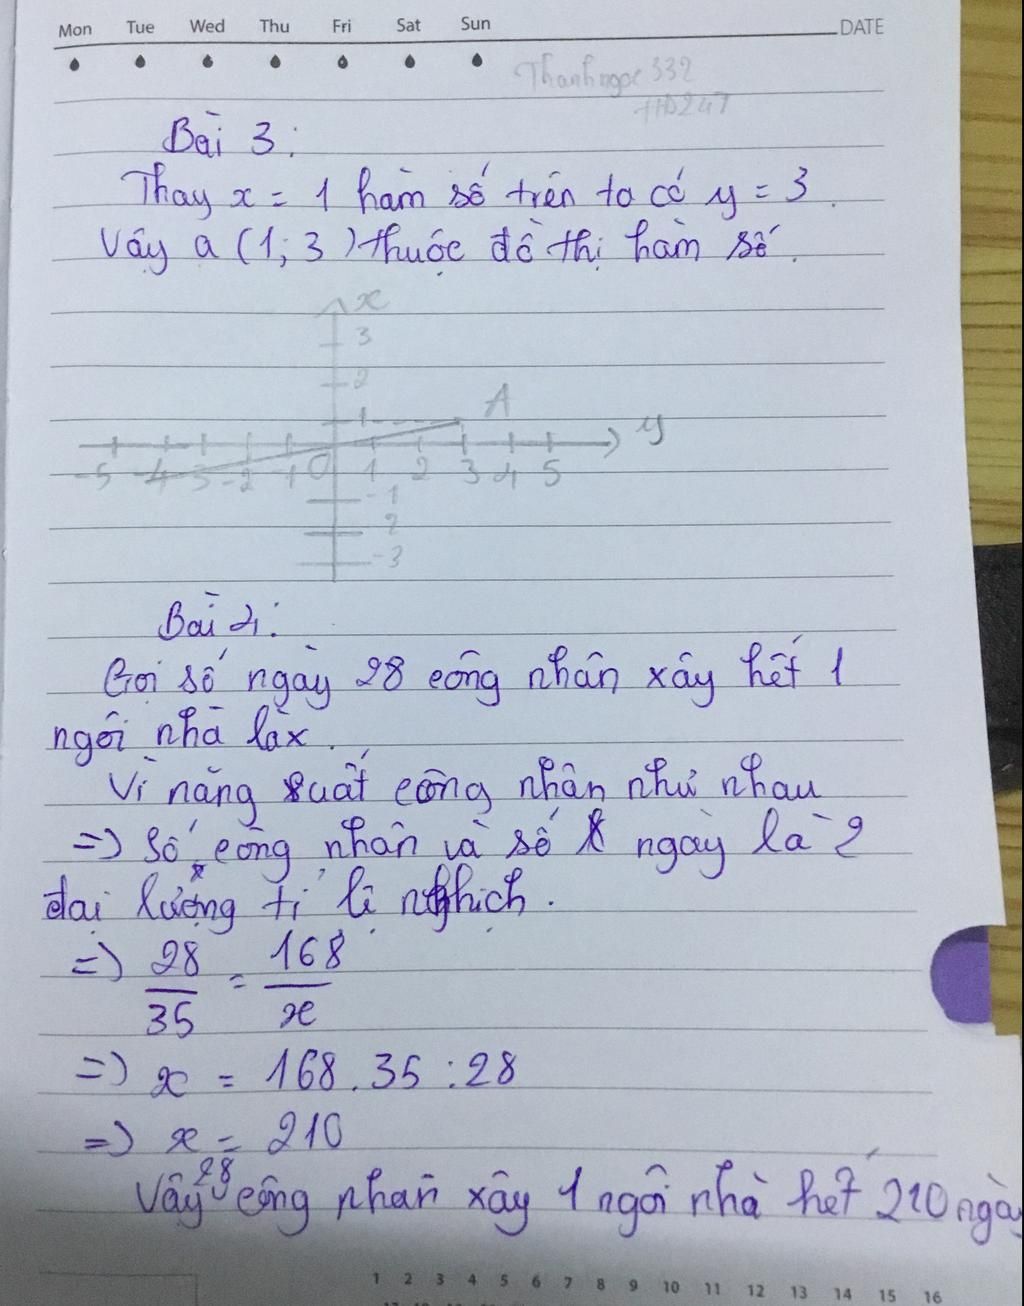 Mon Tue Wed Thu Fri Sat Sun DATE
Thanhngoc332
HD247
Bài 3:
Thay x = 1 hàm số trên ta có y = 3.
Vậy a (1; 3) thuộc đồ thị hàm số.
x
3
2
1 A
y
-5 -4 -3 -2 -1 0 1 2 3 4 5
-1
-2
-3
Bài 4:
Gọi số ngày 28 công nhân xây hết 1
ngôi nhà là x.
Vì năng suất công nhân như nhau
=> Số công nhân và số ngày là 2
đại lượng tỉ lệ nghịch.
=> 28/35 = 168/x
=> x = 168 . 35 : 28
=> x = 210
Vậy 28 công nhân xây 1 ngôi nhà hết 210 ngày
1 2 3 4 5 6 7 8 9 10 11 12 13 14 15 16